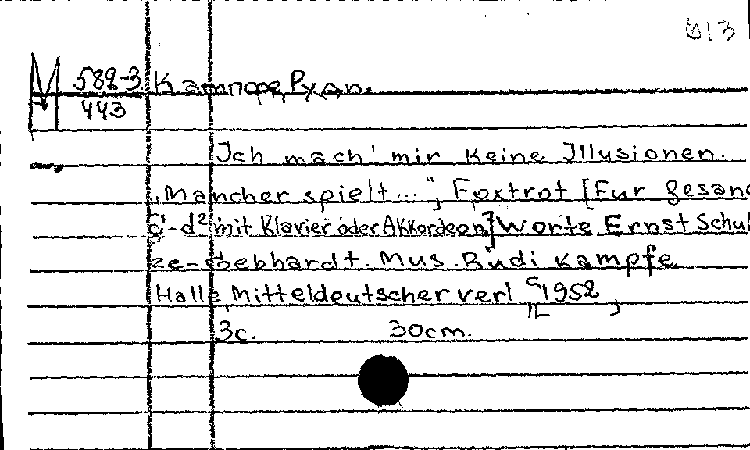 613
М 582-3 Кампфе, Руди.
443
Ich mach' mir keine Illusionen.
„Mancher spielt...", Foxtrot [Für Gesang
c'-d² mit Klavier oder Akkordeon] Worte Ernst Schul
ze-Gebhardt. Mus. Rudi Kampfe
Halle, Mitteldeutscher verl [c1952]
3c. 30cm.